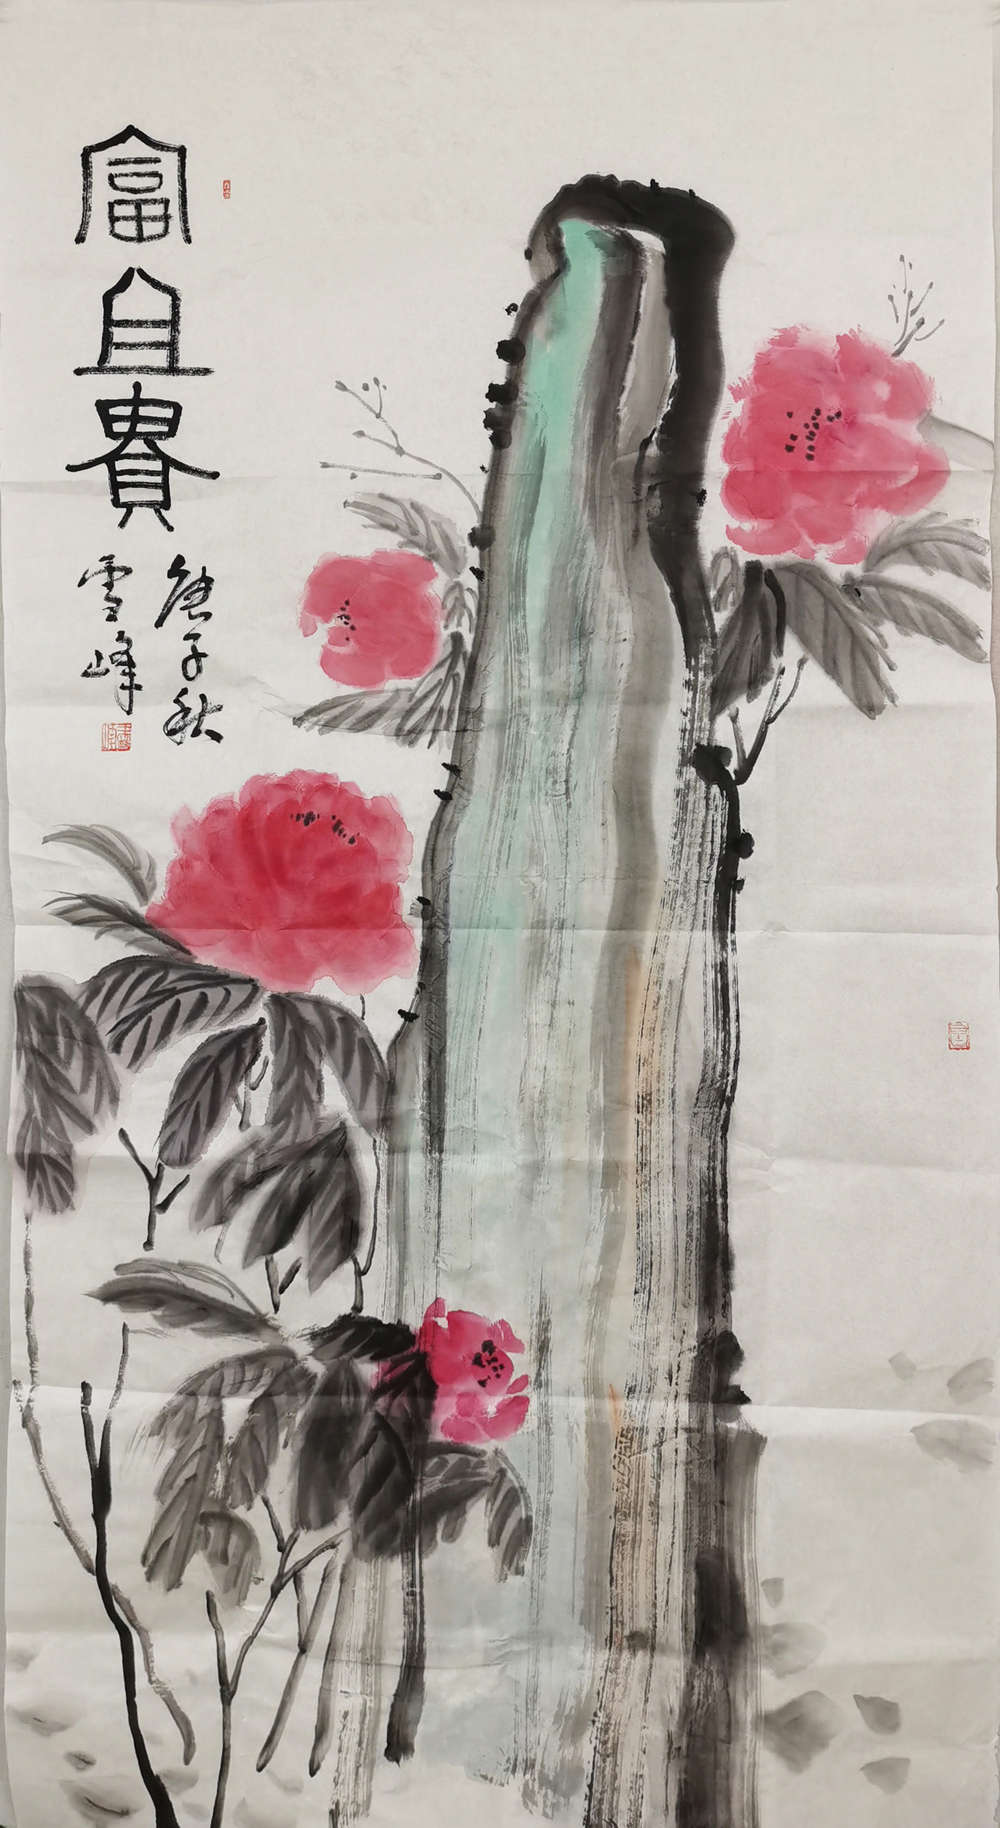 富且貴
庚子秋
雪峰